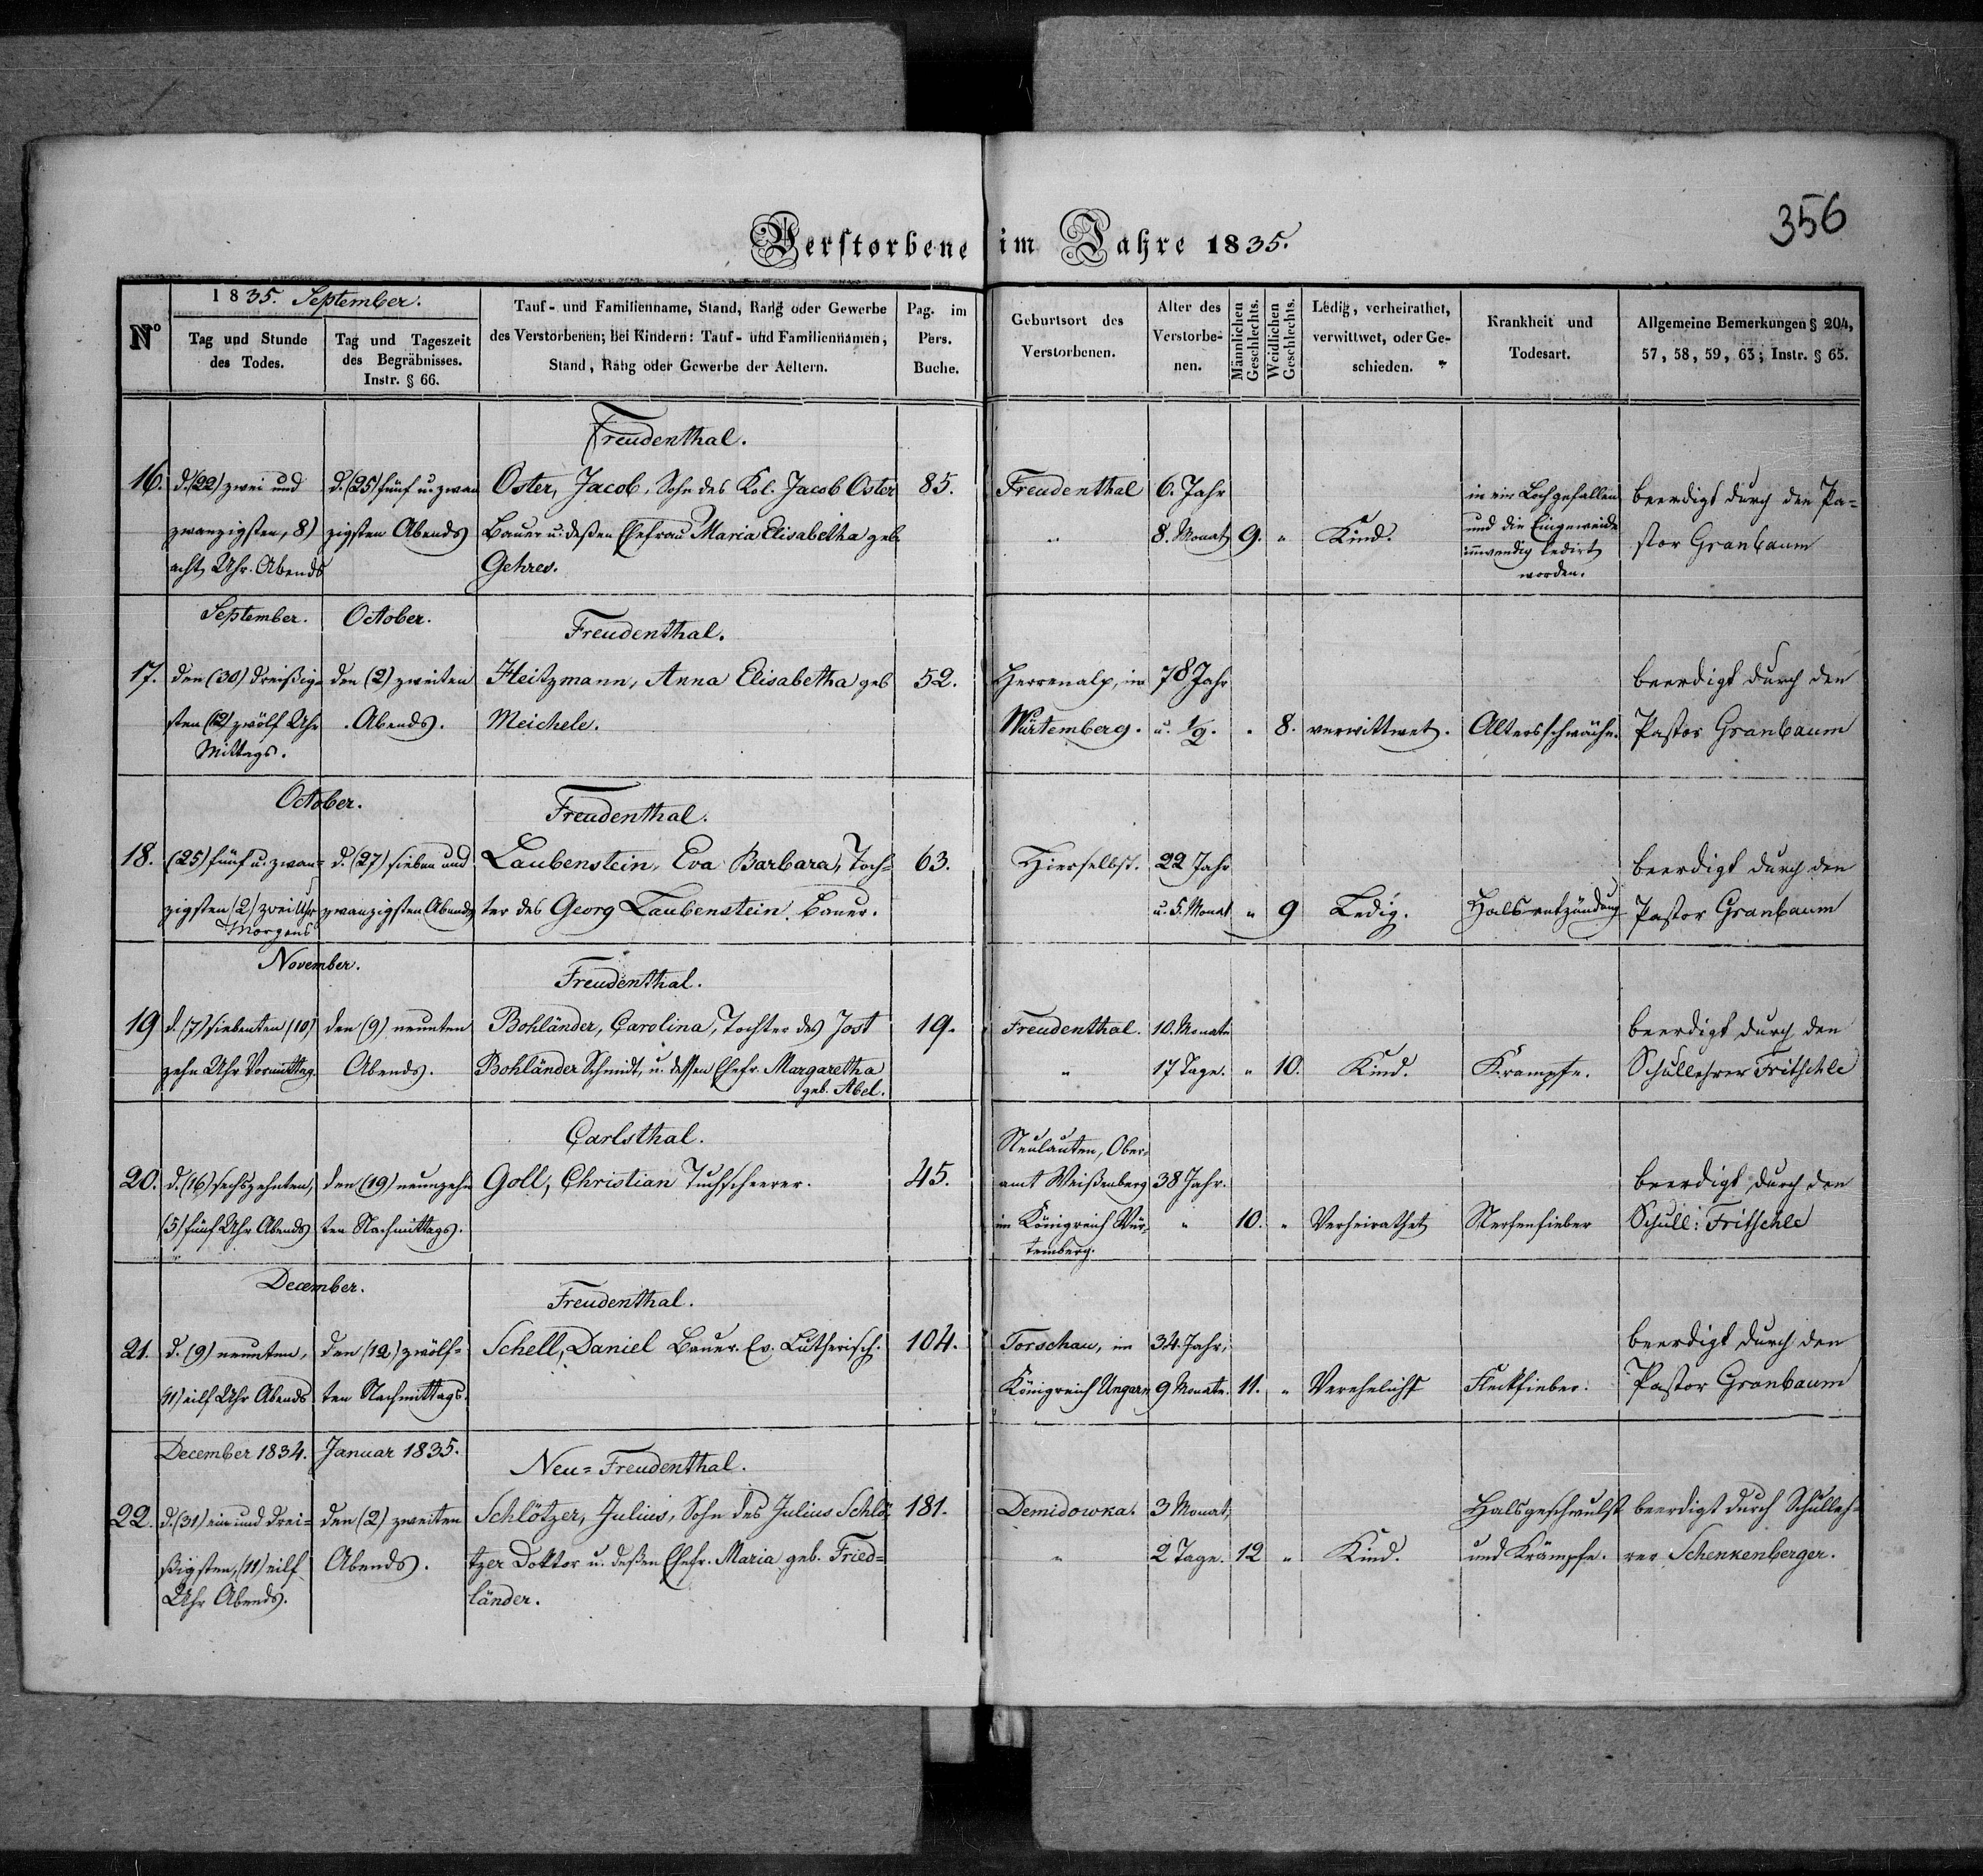 356
Verstorbene im Jahre 1835.
No
1835. September.
Tag und Stunde
des Todes.
Tag und Tageszeit
des Begräbnisses.
Instr. § 66.
Tauf- und Familienname, Stand, Rang oder Gewerbe
des Verstorbenen; bei Kindern: Tauf- und Familiennamen,
Stand, Rang oder Gewerbe der Aeltern.
Pag. im
Pers.
Buche.
Geburtsort des
Verstorbenen.
Alter des
Verstorbe-
nen.
Männlichen
Geschlechts.
Weidlichen
Geschlechts.
Ledig, verheirathet,
verwittwet, oder Ge-
schieden.
Krankheit und
Todesart.
Allgemeine Bemerkungen § 204,
57, 58, 59, 63; Instr. § 65.
Freudenthal.
16. d. (22) zwei und
zwanzigsten, 8)
acht Uhr Abends
d. (25) fünf u. zwan
zigsten Abends
Oster, Jacob, Sohn des Kol. Jacob Oster
Bauer u. deßen Ehefrau Maria Elisabetha geb.
Gehres.
85.
Freudenthal
"
6. Jahr
8. Monat
9. "
Kind.
in ein Loch gefallen
und die Eingeweide
inwendig ledirt
worden.
beerdigt durch den Pa-
stor Granbaum
September. October.
Freudenthal.
17. den (30) dreißig-
sten (12) zwölf Uhr
Mittags.
den (2) zweiten
Abends.
Heitzmann, Anna Elisabetha geb
Meichele.
52.
Herrenalp, im
Würtemberg.
78 Jahr
u. 1/2.
" 8.
verwittwet.
Altersschwäche.
beerdigt durch den
Pastor Granbaum
October.
Freudenthal.
18. (25) fünf u. zwan-
zigsten (2) zwei Uhr
Morgens
d. (27) sieben und
zwanzigsten Abends
Laubenstein, Eva Barbara, Toch-
ter des Georg Laubenstein, Bauer.
63.
Hierselbst.
22 Jahr
u. 5. Monat
" 9
Ledig.
Halsentzündung
beerdigt durch den
Pastor Granbaum
November.
Freudenthal.
19 d. (7) siebenten (10)
zehn Uhr Vormittag.
den (9) neunten
Abends.
Bohländer, Carolina, Tochter des Jost
Bohländer Schmidt, u. dessen Ehefr. Margaretha
geb. Abel.
19.
Freudenthal.
"
10. Monate
17 Tage.
" 10.
Kind.
Krampfe.
beerdigt durch den
Schullehrer Fritschle
Carlsthal.
20. d. (16) sechszehnten,
(5) fünf Uhr Abends
den (19) neunzehn
ten Nachmittags.
Goll, Christian Tuchscheerer.
45.
Neulauten, Ober-
amt Weißenberg
im Königreich Wür-
temberg.
38 Jahr.
"
10. "
Verheirathet
Nerfenfieber
beerdigt durch den
Schull: Fritschle
December.
Freudenthal.
21. d. (9) neunten,
(11) eilf Uhr Abends
den (12) zwölf-
ten Nachmittags.
Schell, Daniel Bauer. Ev. Lutherisch.
104.
Torschau, im
Königreich Ungarn
34. Jahr,
9 Monate.
11. "
Verehelicht
Fleckfieber.
beerdigt durch den
Pastor Granbaum
December 1834. Januar 1835.
Neu-Freudenthal.
22. d. (31) ein und drei-
ßigsten, (11) eilf
Uhr Abends.
den (2) zweiten
Abends.
Schlötzer, Julius, Sohn des Julius Schlö-
tzer Doktor u. deßen Ehefr. Maria geb. Fried-
länder.
181.
Demidowka.
"
3 Monat,
2 Tage.
12 "
Kind.
Halsgeschwulst
und Krämpfe.
beerdigt durch Schulleh-
rer Schenkenberger.